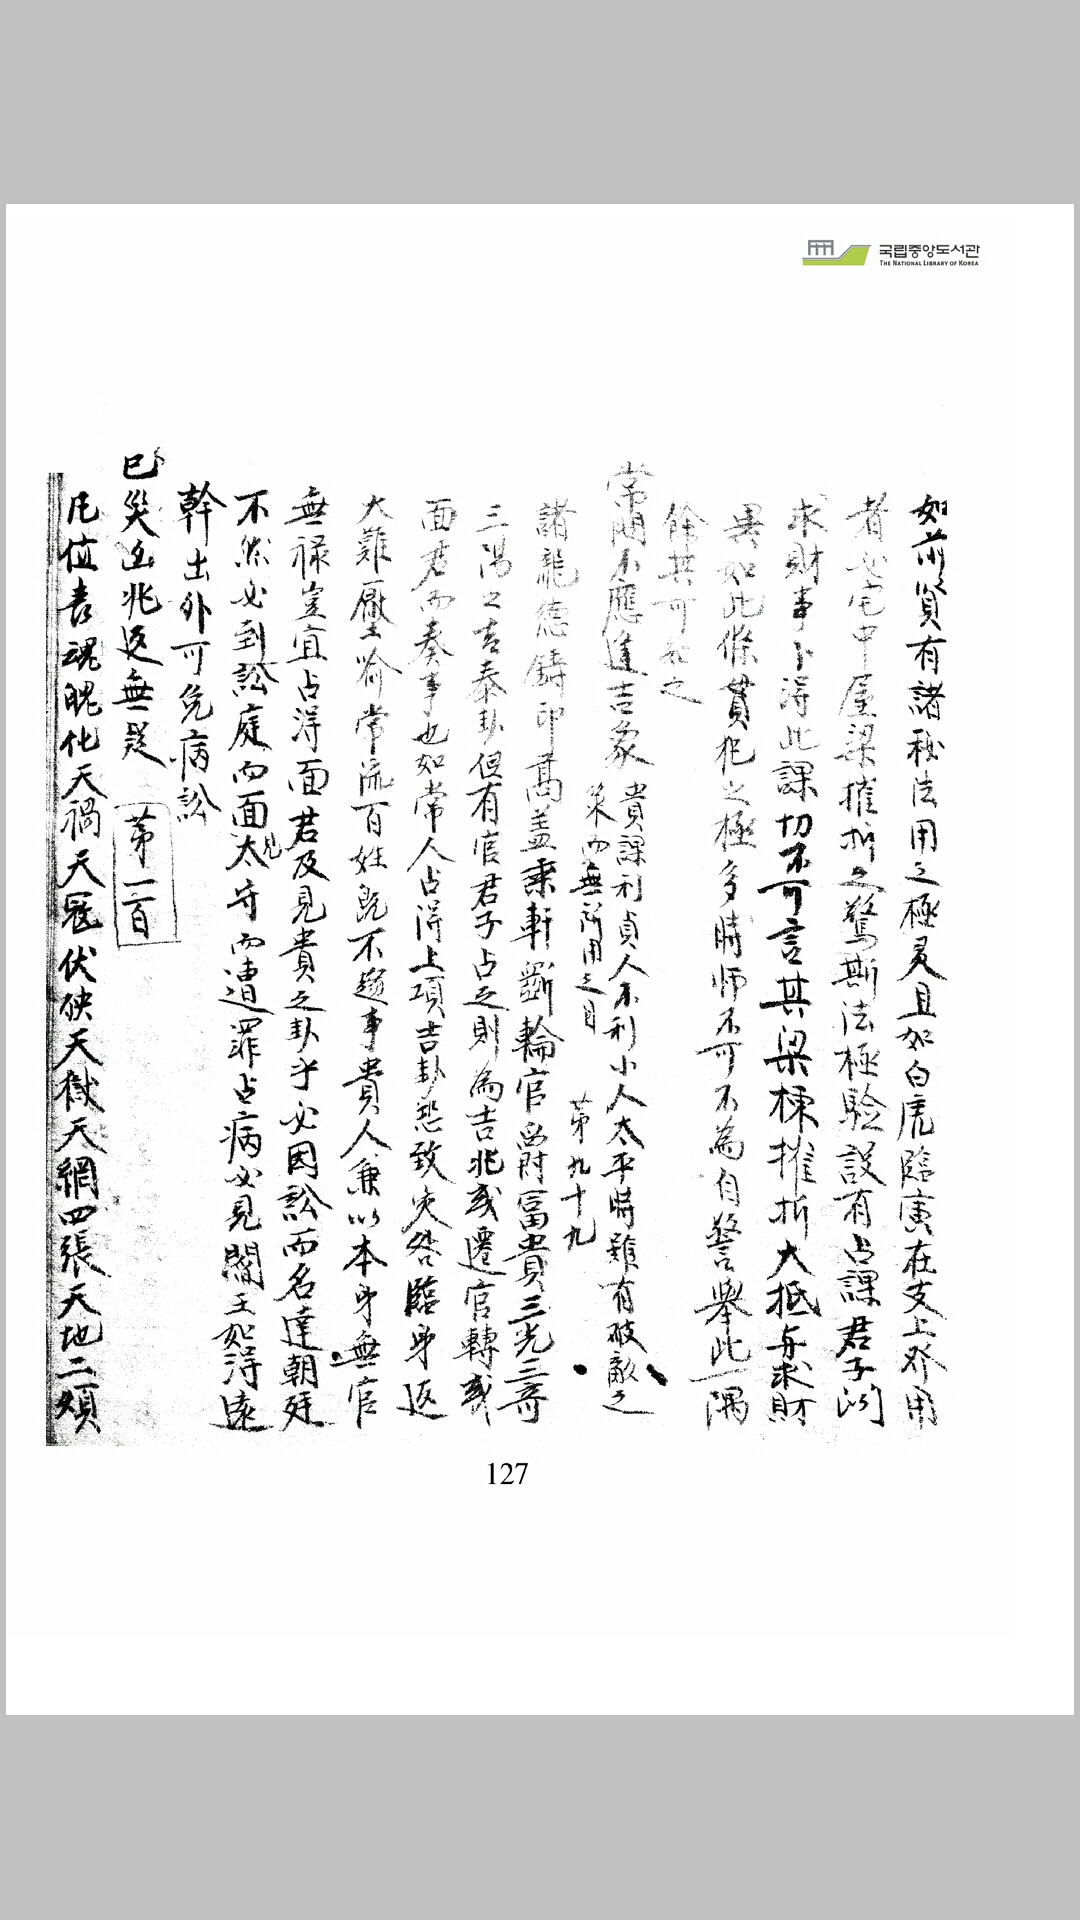 국립중앙도서관
THE NATIONAL LIBRARY OF KOREA
如前賢有諸秘法用之極灵且如白虎臨寅在支上發用
者必宅中屋梁摧折之驚斯法極驗設有占課君子問
求財事卜得此課切不可言其梁棟摧折大抵与求財
異如此條貫犯之極多時師不可不為自警舉此一隅
餘其可知之
常問不應逢吉象
貴課利貞人不利小人太平時雖有破敵之
策而無所用之目
第九十九
諸龍德鑄印高盖乘軒斲輪官爵冨貴三光三奇
三陽之吉泰卦但有官君子占之則為吉兆或遷官轉或
面君而奏事也如常人占得上項吉卦恐致灾咎臨身返
大難厭喻常流百姓既不趨事貴人兼以本身無官
無禄豈宜占得面君及見貴之卦乎必因訟而名達朝廷
不然必到訟庭而面見太守而遭罪占病必見閻王如得遠
幹出外可免病訟
已災凶兆返無疑
第一百
凡值喪魂魄化天禍天寇伏殃天獄天網四張天地二煩
127